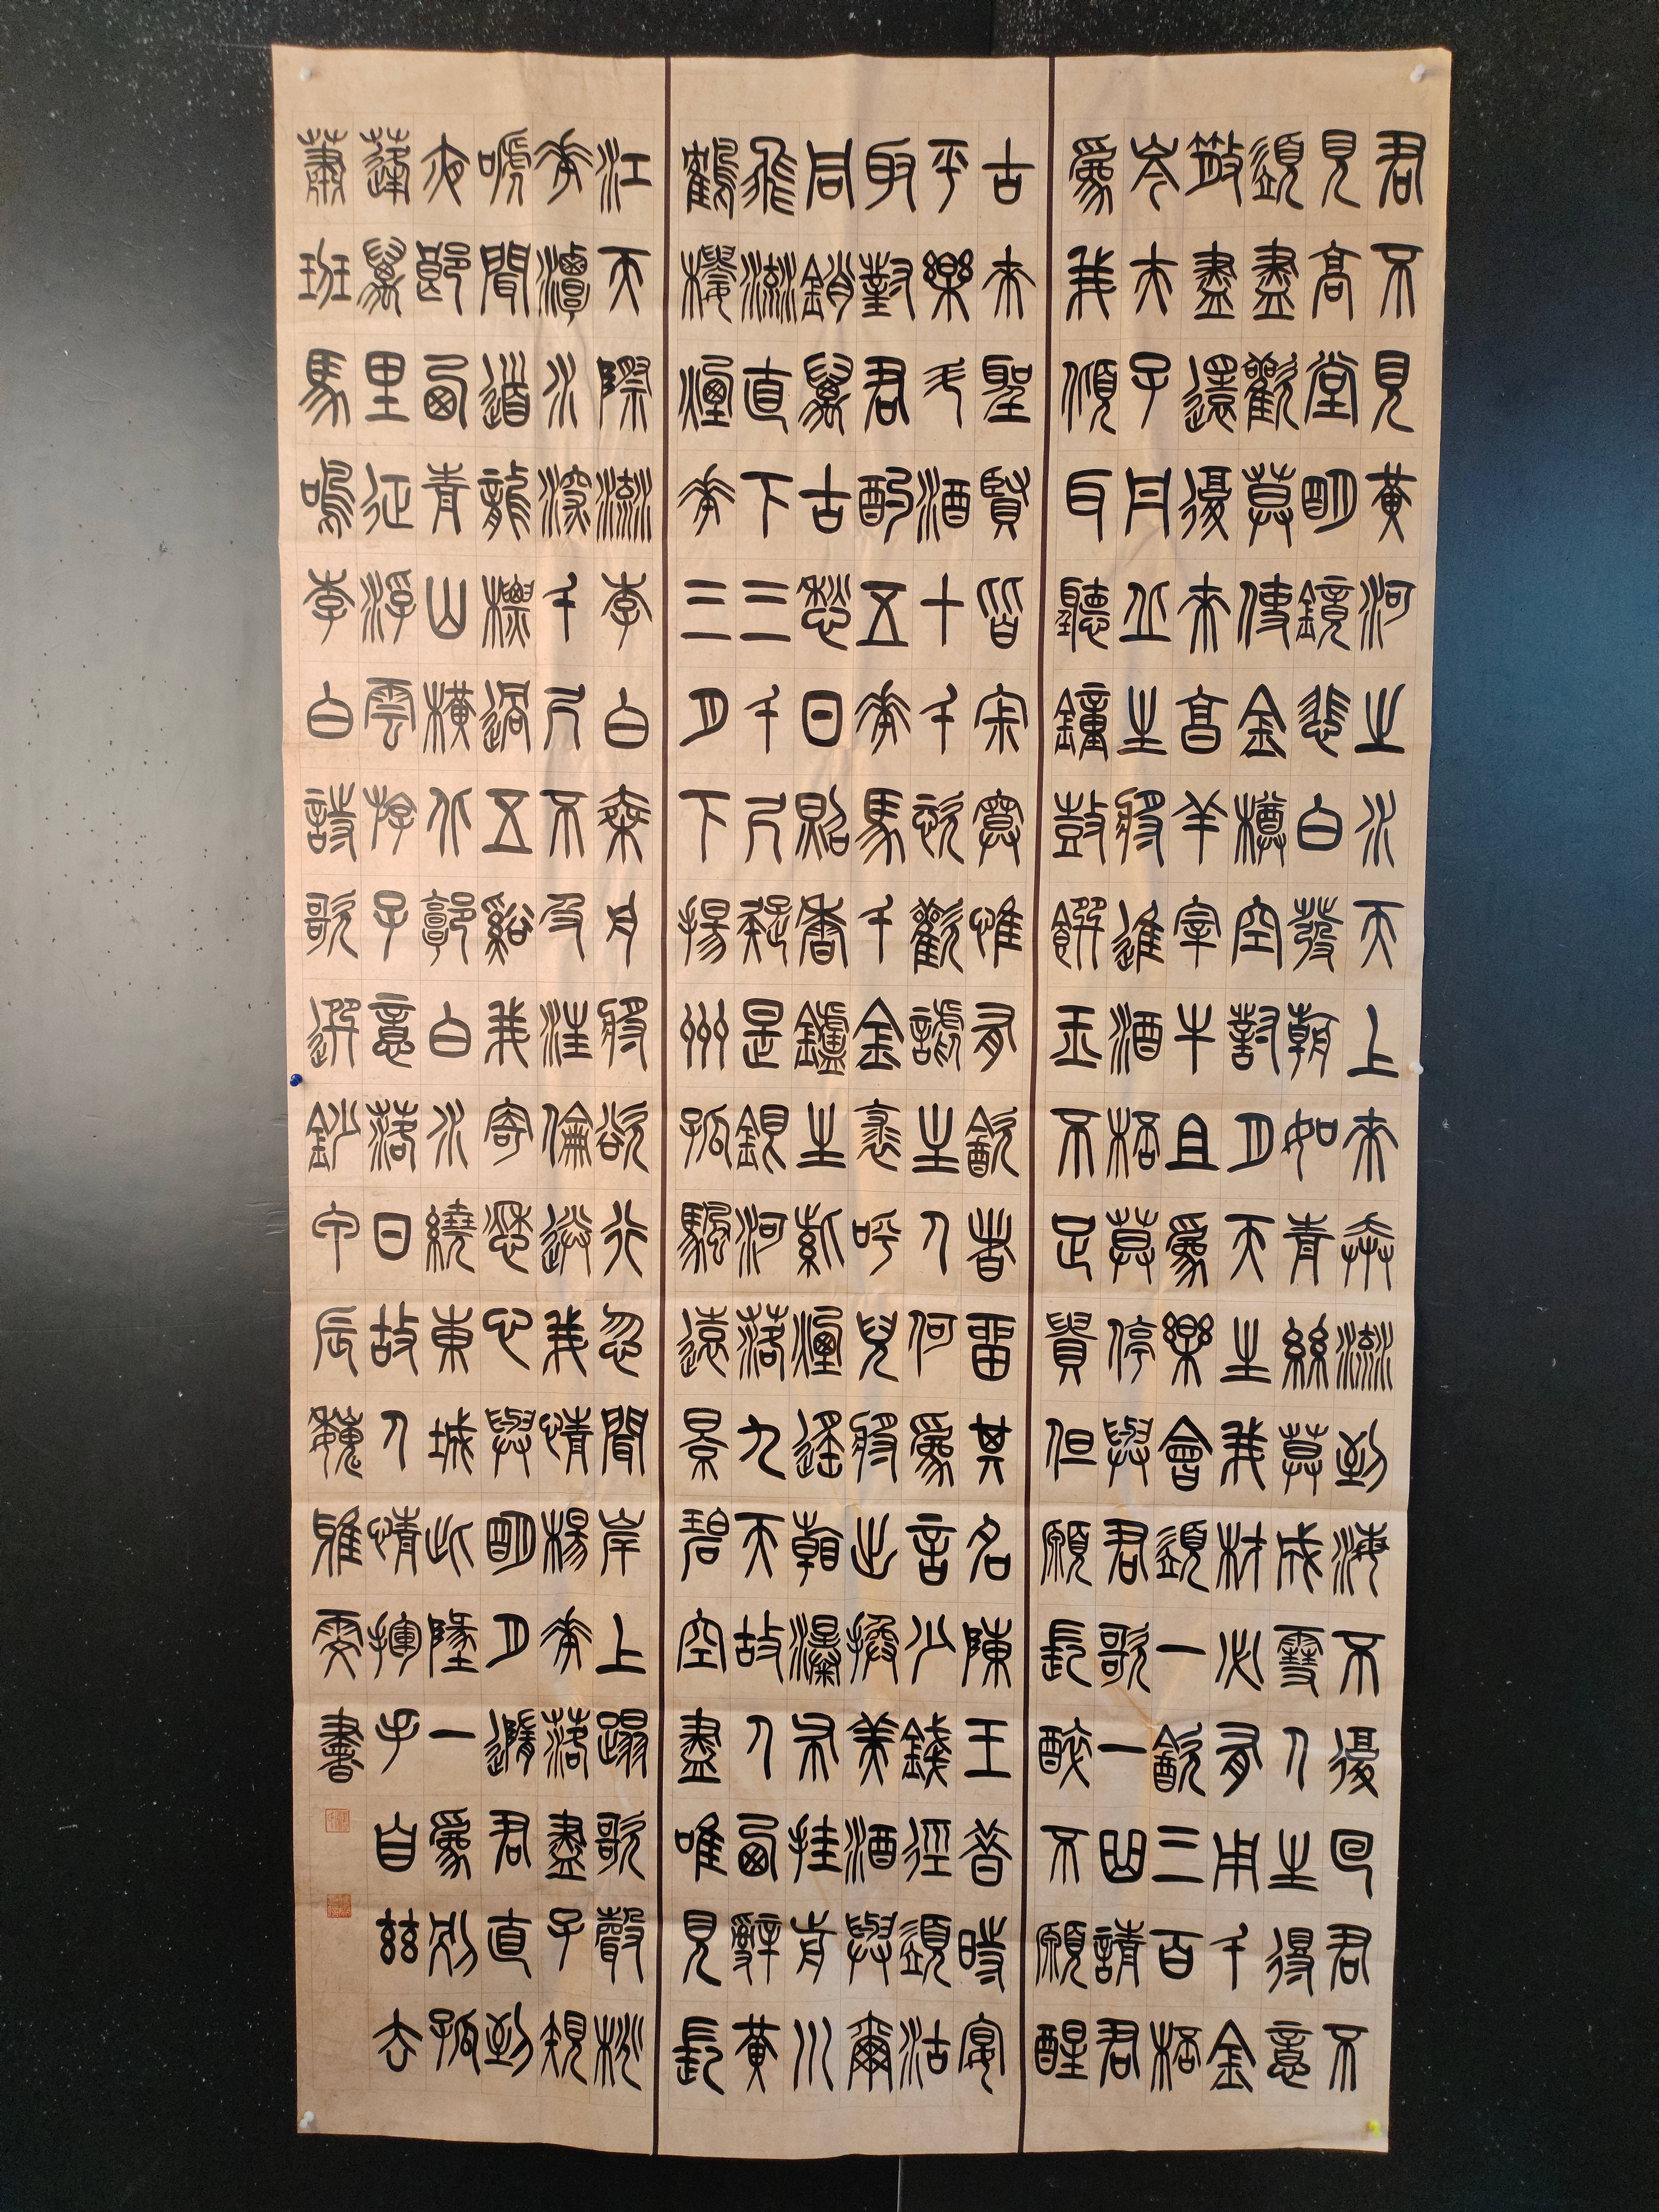 君不見黃河之水天上來奔流到海不復回君不
見高堂明鏡悲白發朝如青絲莫成雪人生得意
須盡歡莫使金樽空對月天生我材必有用千金
散盡還復來烹羊宰牛且爲樂會須一飲三百杯
岑夫子丹丘生將進酒杯莫停與君歌一曲請君
爲我傾耳聽鐘鼓饌玉不足貴但願長醉不願醒
古來聖賢皆寂寞惟有飲者留其名陳王昔時宴
平樂斗酒十千恣歡謔主人何爲言少錢徑須沽
取對君酌五花馬千金裘呼兒將出換美酒與爾
同銷萬古愁日照香鑪生紫煙遙看瀑布挂前川
飛流直下三千尺疑是銀河落九天故人西辭黃
鶴樓煙花三月下揚州孤帆遠景碧空盡唯見長
江天際流李白乘舟將欲行忽聞岸上蹋歌聲桃
花潭水深千尺不及汪倫送我情楊花落盡子規
嗁聞道龍標過五谿我寄愁心與明月隨君直到
夜郎西青山橫北郭白水繞東城此地一爲別孤
蓬萬里征浮雲游子意落日故人情揮手自茲去
蕭班馬鳴李白詩歌選鈔甲辰魏雅雯書